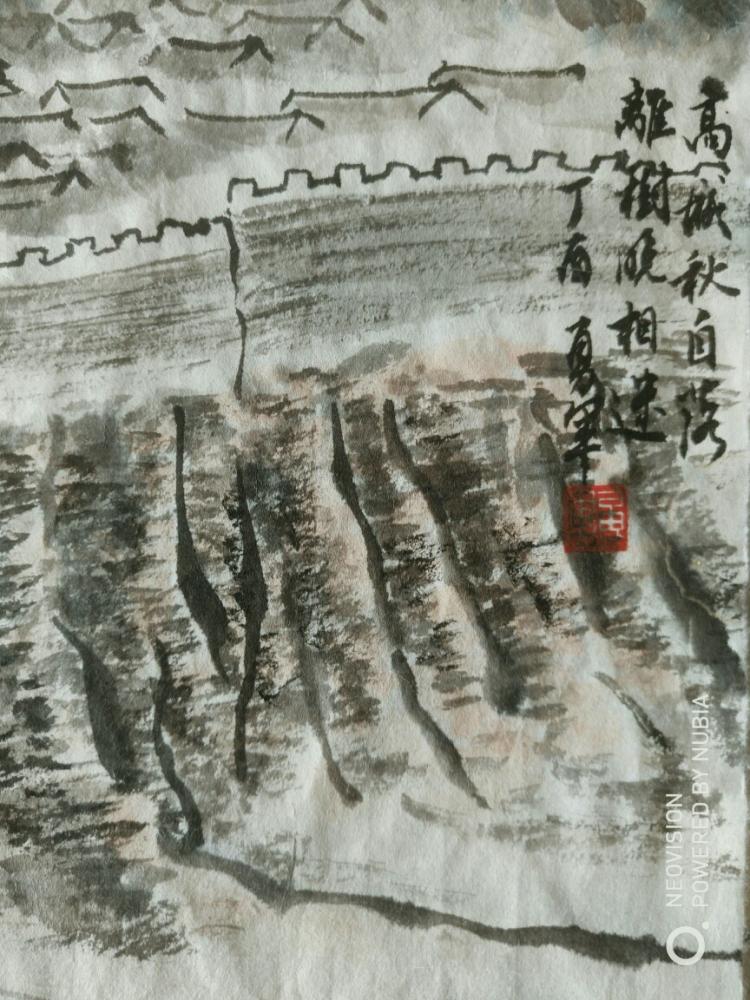 高城秋自落
離樹晚相迷
丁酉 夏
NEOVISION
POWERED BY NUBIA